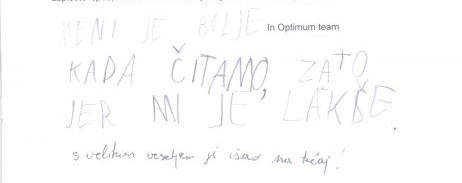 MENI JE BOLJE In Optimum team
KADA ČITAMO, ZATO
JER MI JE LAKŠE.
s velikim veseljem je išao na tečaj!